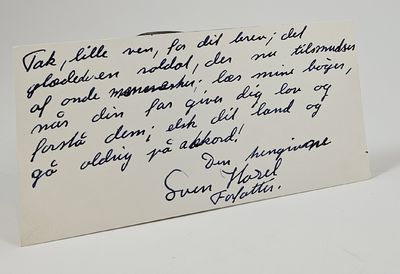 Tak, lille ven, for dit brev; det
glædede en soldat, der nu tilsmudses
af onde mennesker; læs mine bøger,
når din far giver dig lov og
forstå dem; elsk dit land og
gå aldrig på akkord!
Din hengivne
Sven Hazel
Forfatter.